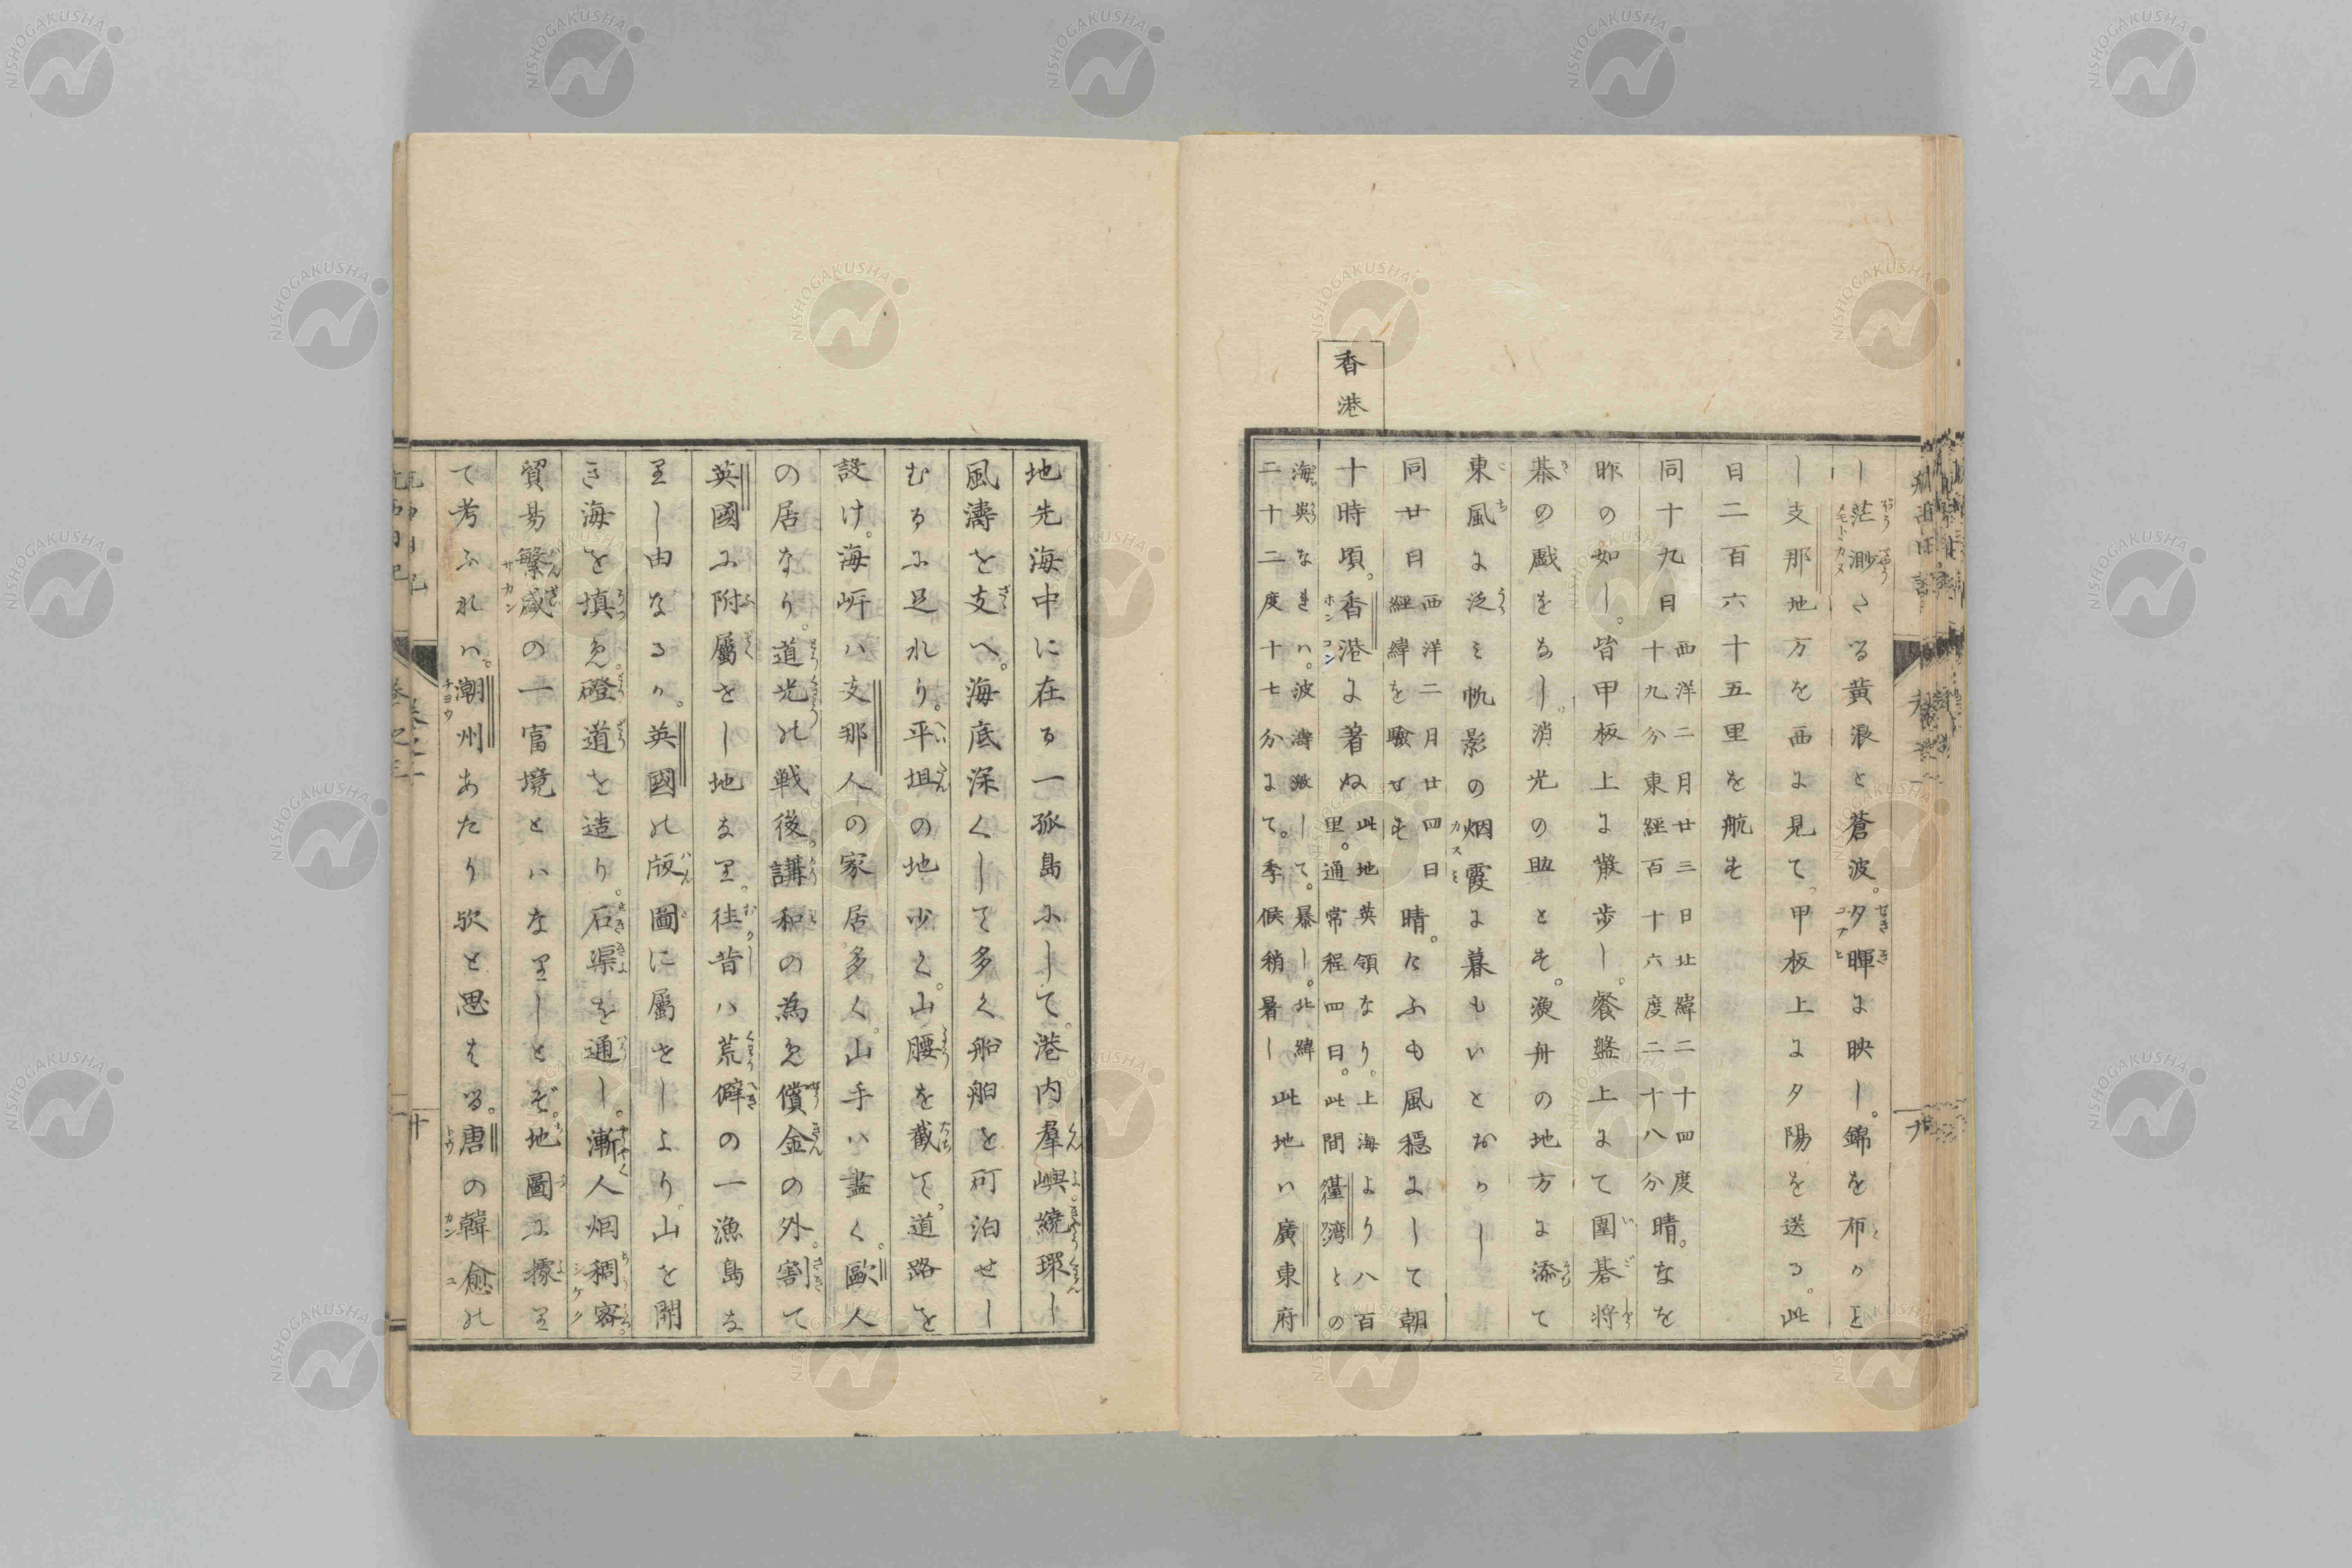 香港
し茫渺たる黄浪と蒼波。夕暉に映し。錦を布かと
し支那地方を西に見て。甲板上に夕陽を送る。此
日二百六十五里を航す
同十九日西洋二月廿三日北緯二十四度十九分東経百十六度二十八分晴。なを
昨の如し。皆甲板上に散歩し。餐盤上にて圍碁将
棊の戯をなし。消光の助とす。漁舟の地方に添て
東風に泛ミ帆影の烟霞に暮もいとおかし
同廿日西洋二月廿四日経緯を験せず晴。けふも風穏にして朝
十時頃。香港に著ぬ此地英領なり。上海より八百里。通常程四日。此間
海奥なきハ。波濤激して。暴し。北緯二十二度十七分にて。季候稍暑し此地ハ廣東府
地先海中に在る一孤島にして。港内羣嶼繞環し
風濤を支へ。海底深くして多く船舶を可泊せし
むるに足れり。平坦の地少く。山腰を截て。道路を
設け。海岍ハ支那人の家居多く。山手ハ盡く。歐人
の居なり。道光の戦後。講和の為め償金の外。割て
英國に附屬せし地なり。往昔ハ荒僻の一漁島な
りし由なるが。英國の版圖に屬せしより。山を開
き海を填め。磴道を造り。石渠を通し。漸人烟稠密。
貿易繁盛の一富境とハなりしとぞ。地圖に據り
て考ふれハ。潮州あたり歟と思はる。唐の韓愈の